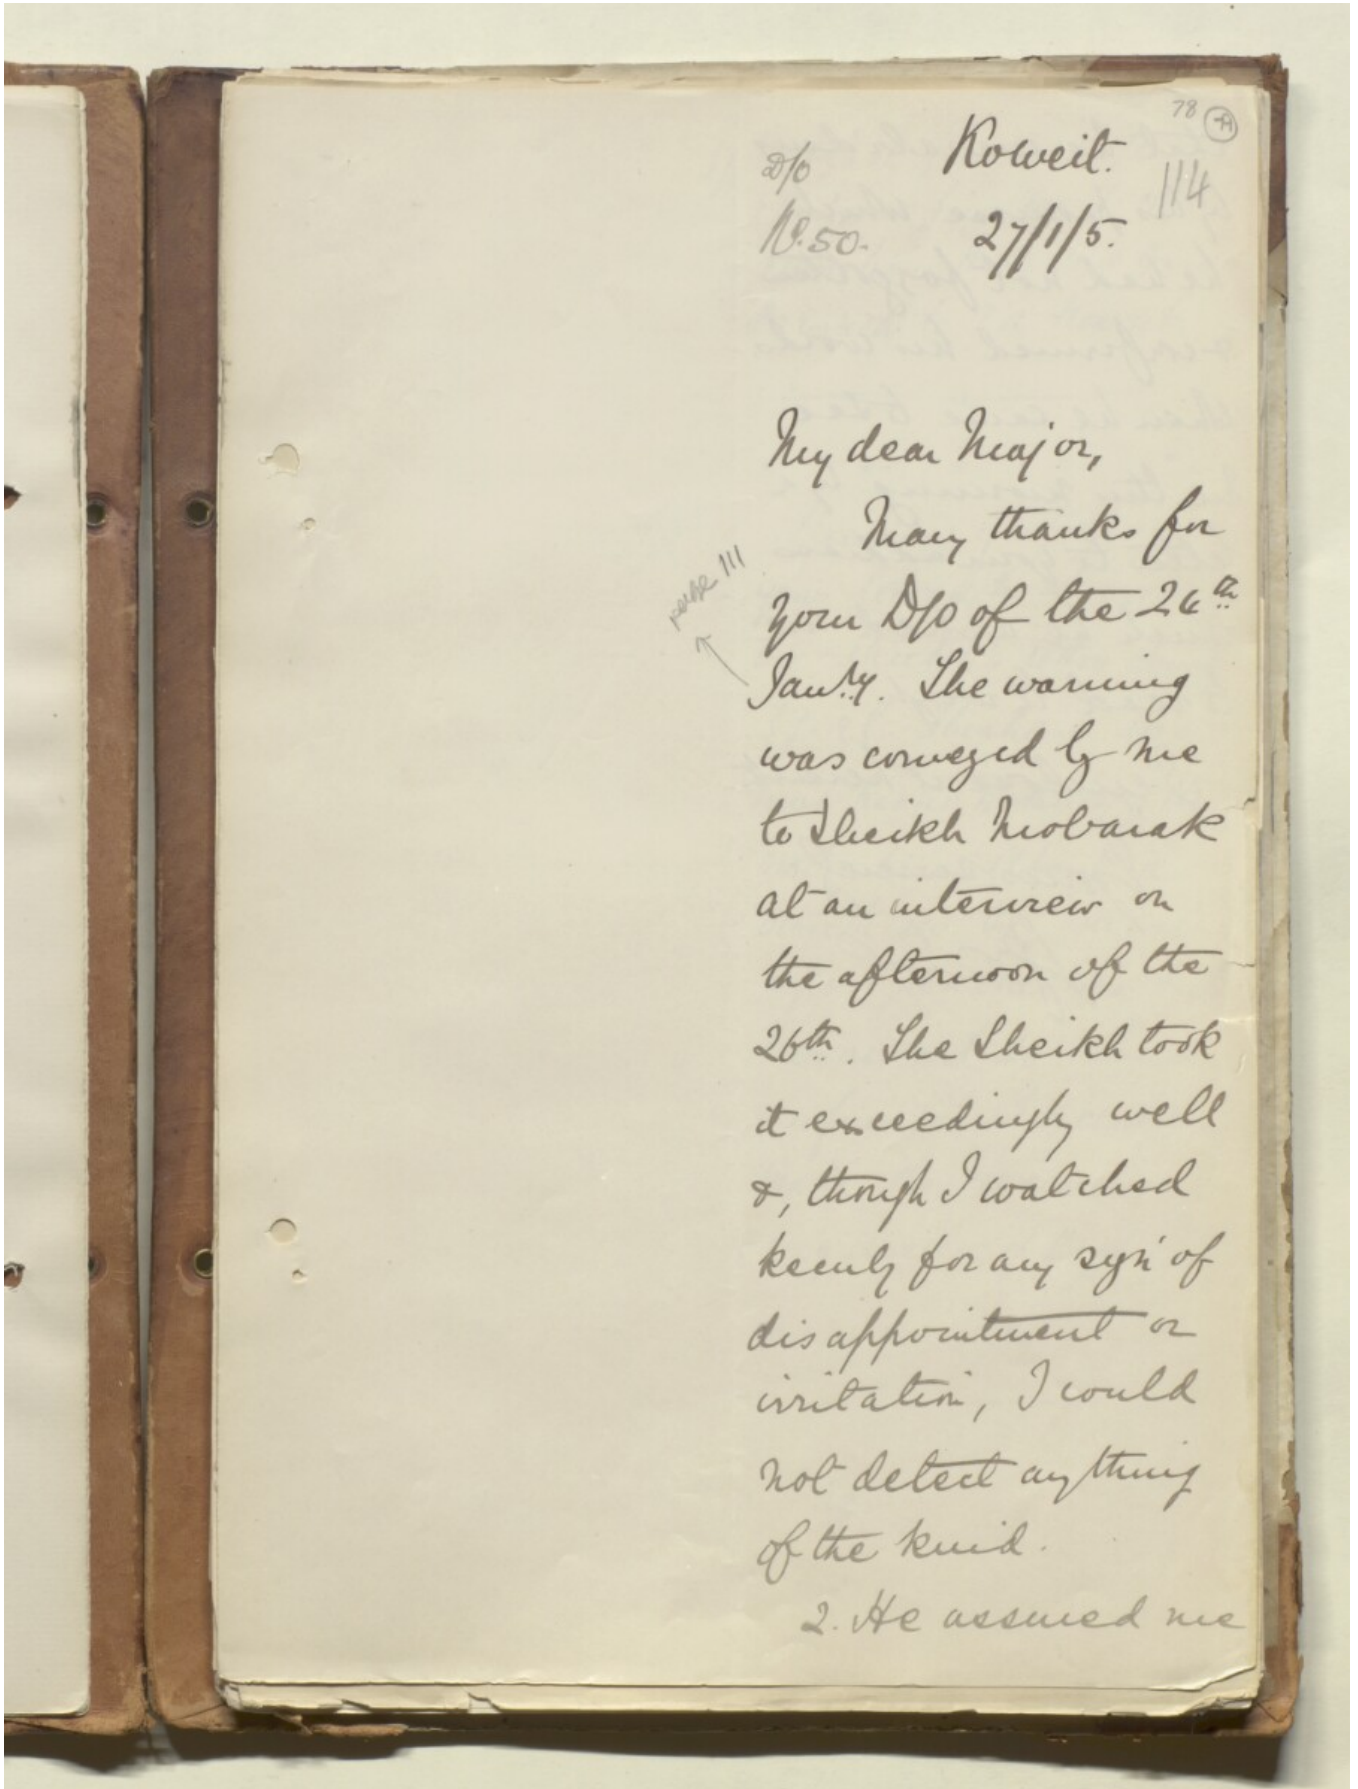 78
D/O Koweit.
114
No. 50. 27/1/5.
My dear Major,
Many thanks for
page 111
your D/O of the 26th
Jan.y. The warning
was conveyed by me
to Sheikh Mobarak
at an interview on
the afternoon of the
26th. The Sheikh took
it exceedingly well
&, though I watched
keenly for any sign of
disappointment or
irritation, I could
not detect anything
of the kind.
2. He assured me